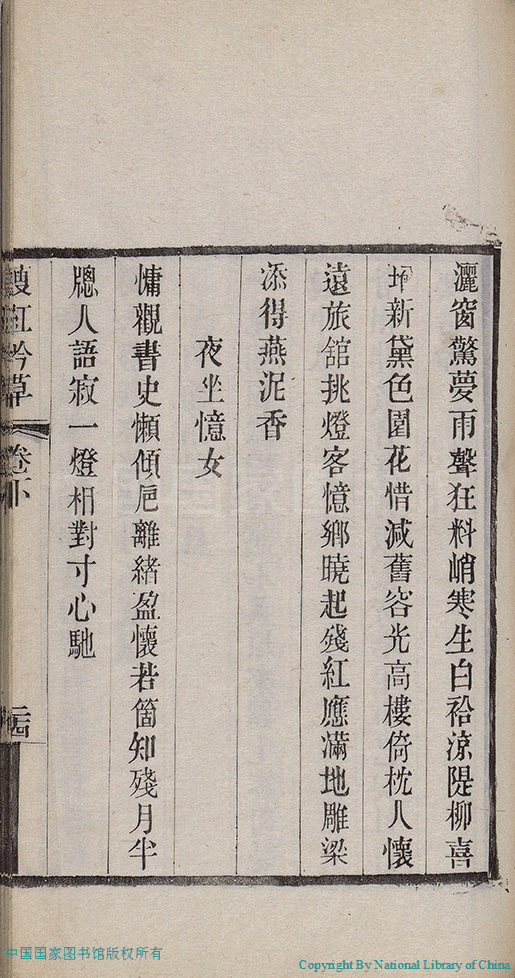 灑窗驚夢雨聲狂料峭寒生白袷涼隄柳喜
增新黛色園花惜減舊容光高樓倚枕人懷
遠旅舘挑燈客憶鄉曉起殘紅應滿地雕梁
添得燕泥香
夜坐憶女
慵觀書史懶傾卮離緒盈懷若箇知殘月半
牕人語寂一燈相對寸心馳
紅吟草
卷下
中国国家图书馆版权所有
Copyright By National Library of China